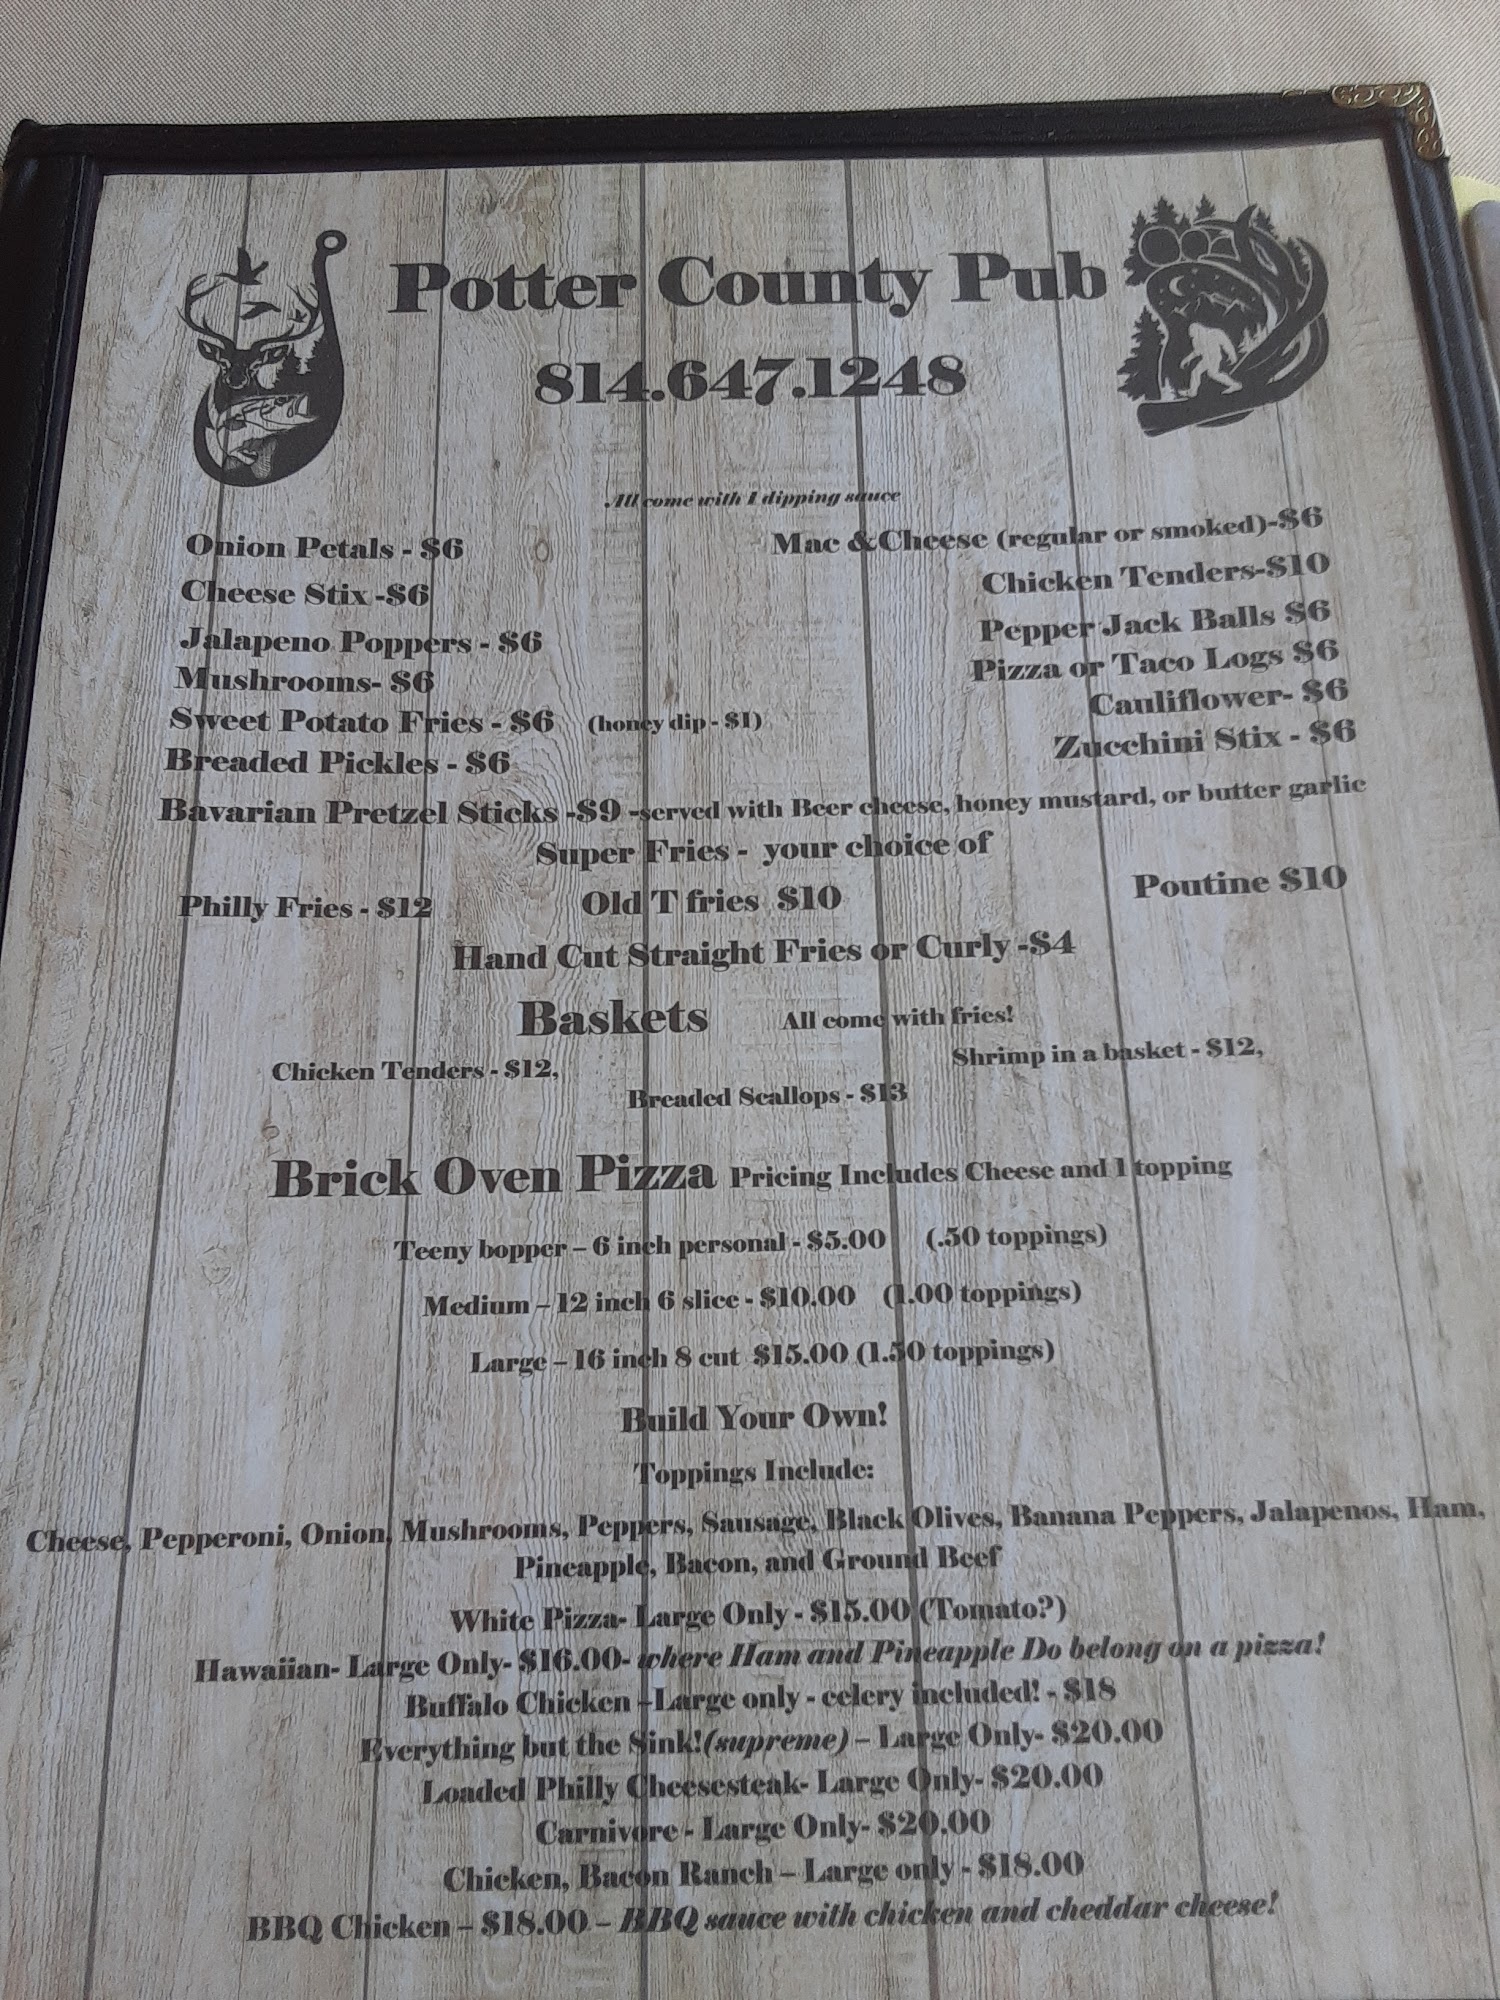 Potter County Pub
814.647.1248
All come with 1 dipping sauce
Onion Petals - $6
Cheese Stix -$6
Jalapeno Poppers - $6
Mushrooms- $6
Sweet Potato Fries - $6 (honey dip - $1)
Breaded Pickles - $6
Mac &Cheese (regular or smoked)-$6
Chicken Tenders-$10
Pepper Jack Balls $6
Pizza or Taco Logs $6
Cauliflower- $6
Zucchini Stix - $6
Bavarian Pretzel Sticks -$9 -served with Beer cheese, honey mustard, or butter garlic
Super Fries - your choice of
Philly Fries - $12 Old T fries $10 Poutine $10
Hand Cut Straight Fries or Curly -$4
Baskets All come with fries!
Chicken Tenders - $12, Shrimp in a basket - $12,
Breaded Scallops - $13
Brick Oven Pizza Pricing Includes Cheese and 1 topping
Teeny bopper – 6 inch personal - $5.00 (.50 toppings)
Medium – 12 inch 6 slice - $10.00 (1.00 toppings)
Large – 16 inch 8 cut $15.00 (1.50 toppings)
Build Your Own!
Toppings Include:
Cheese, Pepperoni, Onion, Mushrooms, Peppers, Sausage, Black Olives, Banana Peppers, Jalapenos, Ham,
Pineapple, Bacon, and Ground Beef
White Pizza- Large Only - $15.00 (Tomato?)
Hawaiian- Large Only- $16.00- where Ham and Pineapple Do belong on a pizza!
Buffalo Chicken –Large only - celery included! - $18
Everything but the Sink!(supreme) – Large Only- $20.00
Loaded Philly Cheesesteak- Large Only- $20.00
Carnivore - Large Only- $20.00
Chicken, Bacon Ranch – Large only - $18.00
BBQ Chicken – $18.00 – BBQ sauce with chicken and cheddar cheese!